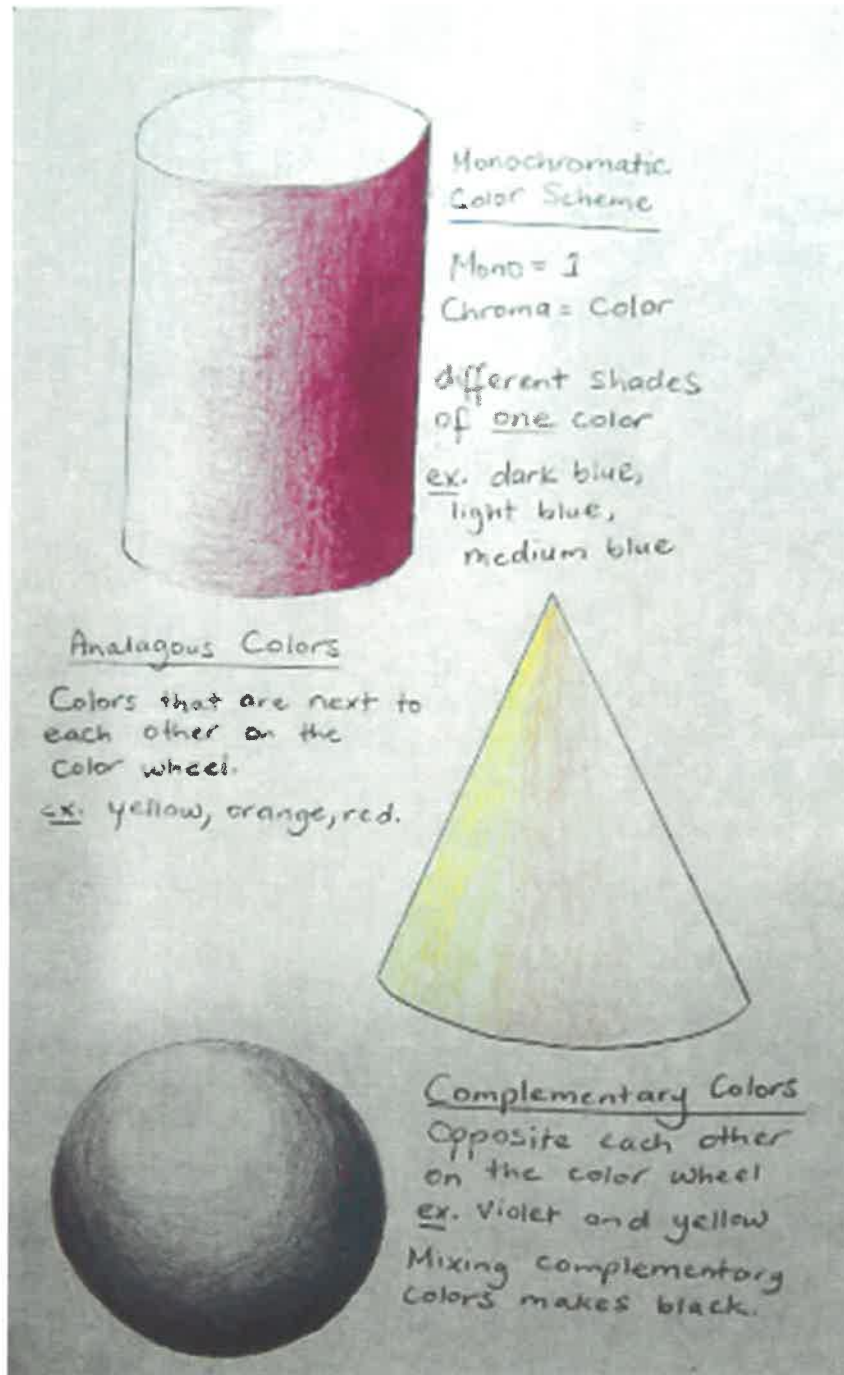 Monochromatic
Color Scheme
Mono = 1
Chroma = Color
different shades
of one color
ex. dark blue,
light blue,
medium blue
Analagous Colors
Colors that are next to
each other on the
color wheel.
ex. yellow, orange, red.
Complementary Colors
Opposite each other
on the color wheel
ex. Violet and yellow
Mixing complementary
colors makes black.